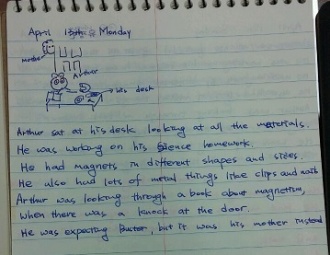 April 13th Monday
mother
Arthur
his desk
Arthur sat at his desk looking at all the materials.
He was working on his Science homework.
He had magnets in different shapes and sizes.
He also had lots of metal things like clips and nails
Arthur was looking through a book about magnetism,
when there was a knock at the door.
He was expecting Buster, but it was his mother instead